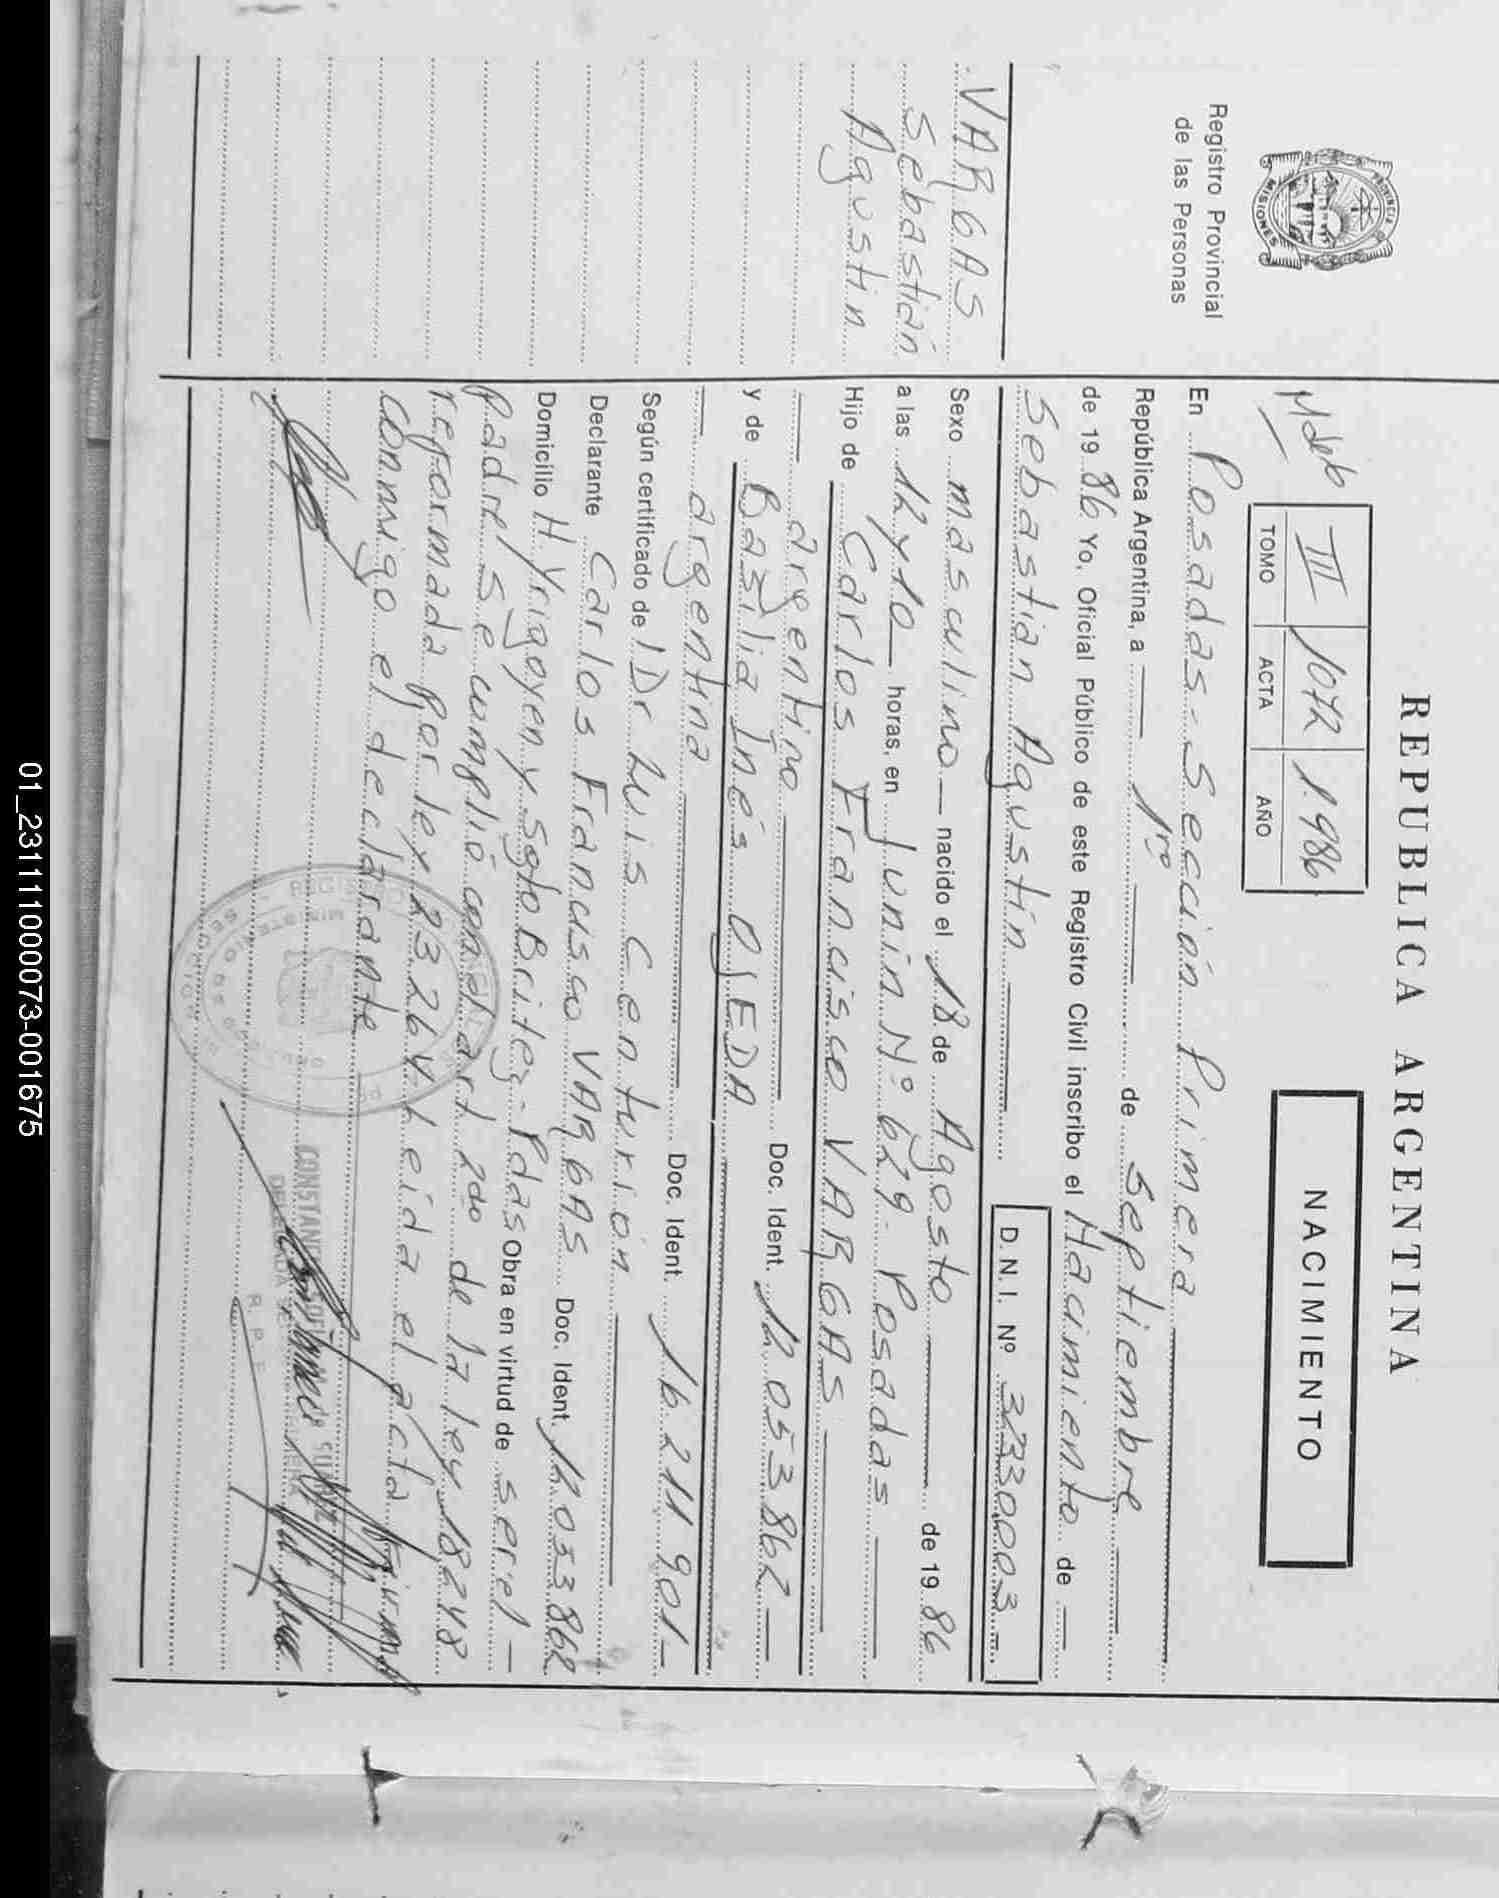 REPUBLICA ARGENTINA
PROVINCIA DE MISIONES
Registro Provincial
de las Personas
III 1072 1.986
TOMO ACTA AÑO
NACIMIENTO
VARGAS
Sebastián
Agustin
En Posadas - Sección Primera
República Argentina, a 1ro de Septiembre
de 19 86 Yo, Oficial Público de este Registro Civil inscribo el Nacimiento de
Sebastian Agustin
D.N.I. Nº 32330003
Sexo masculino nacido el 18 de Agosto de 19 86
a las 12 y 10 horas, en Junin Nº 629. Posadas
Hijo de Carlos Francisco VARGAS
argentino Doc. Ident. 12 053 862
y de Basilia Inés OJEDA
argentina Doc. Ident. 16 211 901
Según certificado de Dr Luis Centurión
Declarante Carlos Francisco VARGAS Doc. Ident. 12 053 862
Domicilio H. Yrigoyen y Sgto Britez - Pdas Obra en virtud de ser el
padre/ Se cumplió con el art 2do de la ley 18248
reformada por ley 23264 Leída el acta
conmigo el declarante
REGISTRO
CONSTANCIA
DELEGADA
01_2311110000073-001675